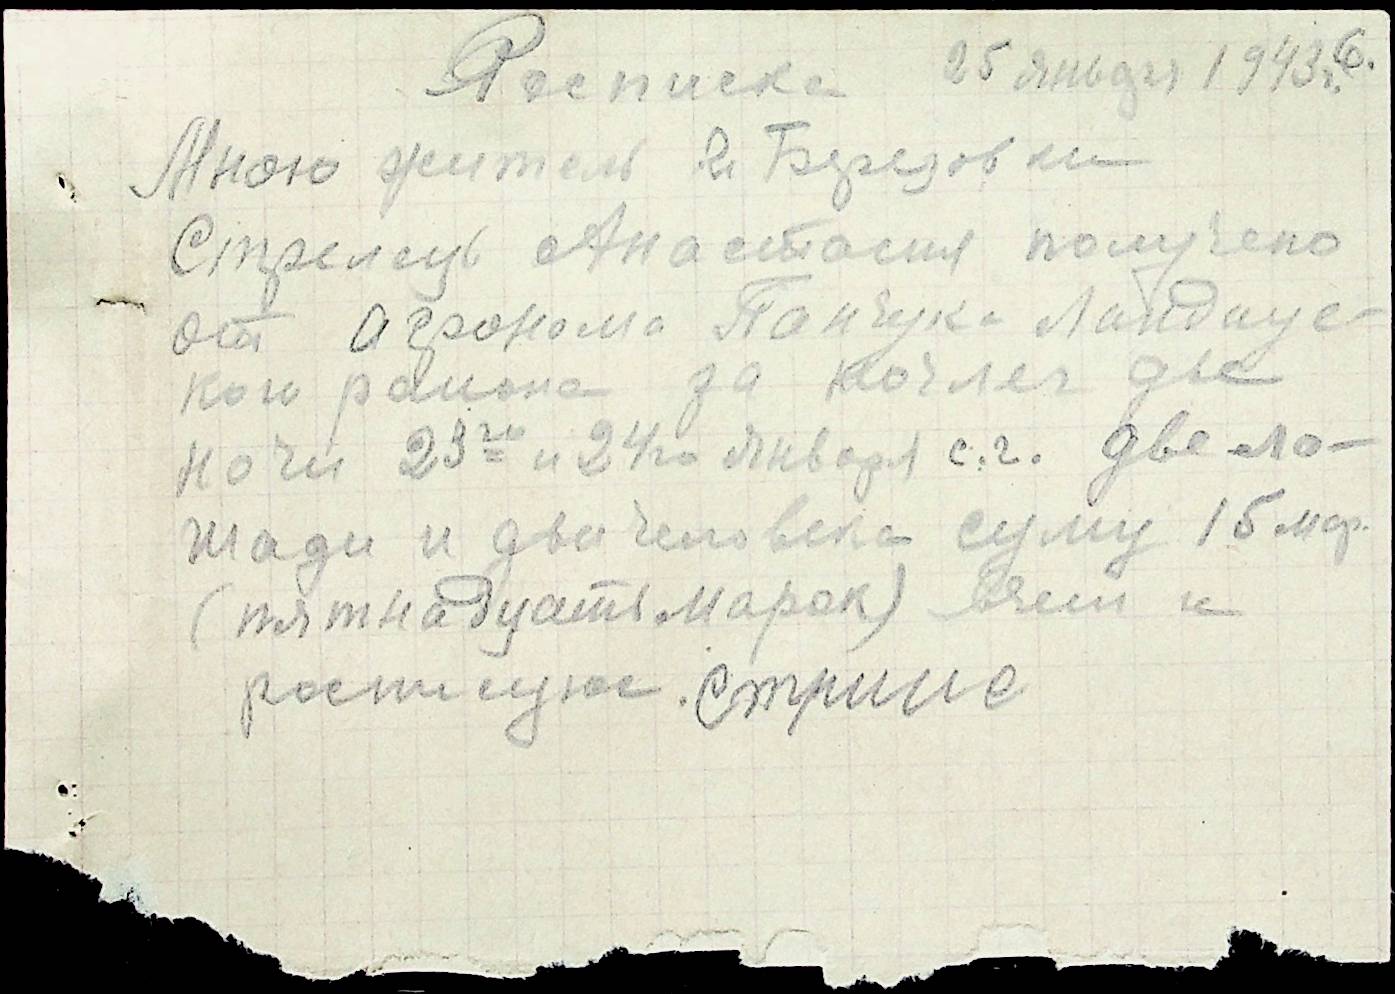 Росписка 25 января 1943 г. 6.
Мною житель г. Березовки
Стрелец Анастасия получено
от агронома Панчука Ландаус-
кого района за ночлег две
ночи 23го и 24го января с.г. две ло-
шади и два человека суму 15 мар.
(пятнадцать марок) в чем и
росписуюс. Стрилец